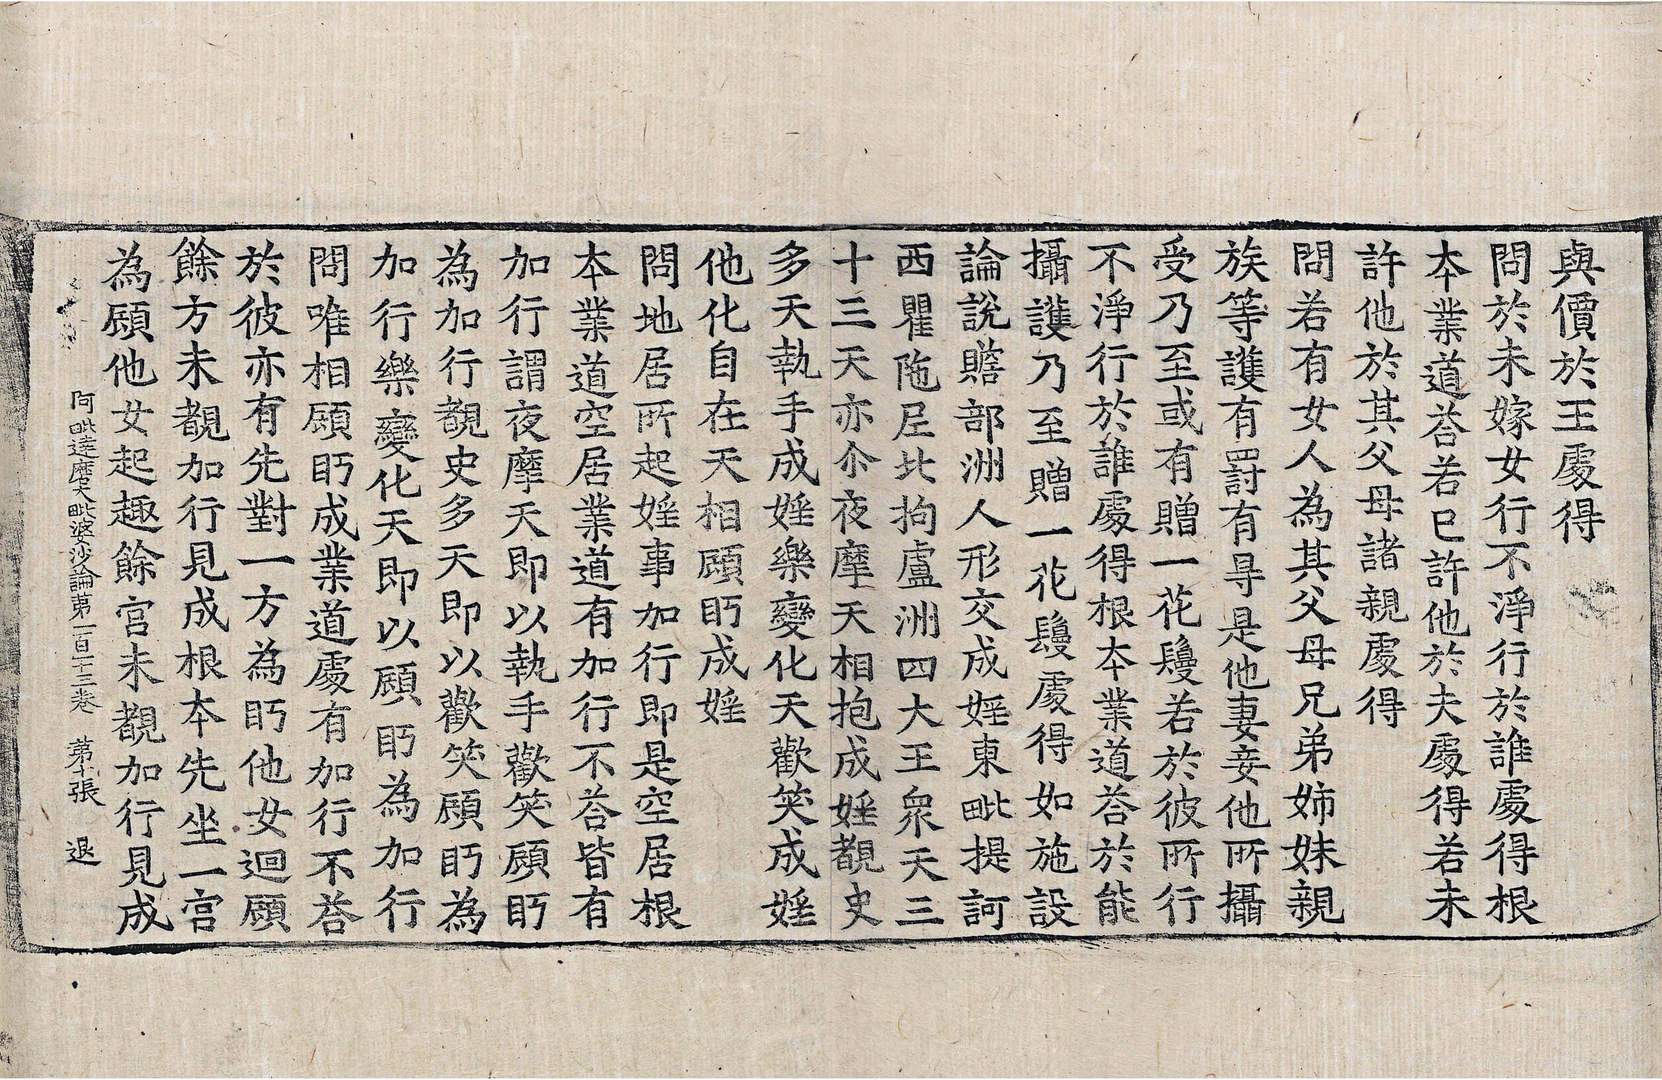 與價於王處得
問於未嫁女行不淨行於誰處得根
本業道荅若已許他於夫處得若未
許他於其父母諸親處得
問若有女人為其父母兄弟姉妹親
族等護有罸有㝵是他妻妾他所攝
受乃至或有贈一花鬘若於彼所行
不淨行於誰處得根本業道荅於能
攝護乃至贈一花鬘處得如施設
論說贍部洲人形交成婬東毗提訶
西瞿陁尼北拘盧洲四大王眾天三
十三天亦尒夜摩天相抱成婬覩史
多天執手成婬樂變化天歡笑成婬
他化自在天相顧眄成婬
問地居所起婬事加行即是空居根
本業道空居業道有加行不荅皆有
加行謂夜摩天即以執手歡笑顧眄
為加行覩史多天即以歡笑顧眄為
加行樂變化天即以顧眄為加行
問唯相顧眄成業道處有加行不荅
於彼亦有先對一方為眄他女迴顧
餘方未覩加行見成根本先坐一宮
為顧他女起趣餘宮未覩加行見成
阿毗達磨大毗婆沙論第一百一十三卷 第 張 退